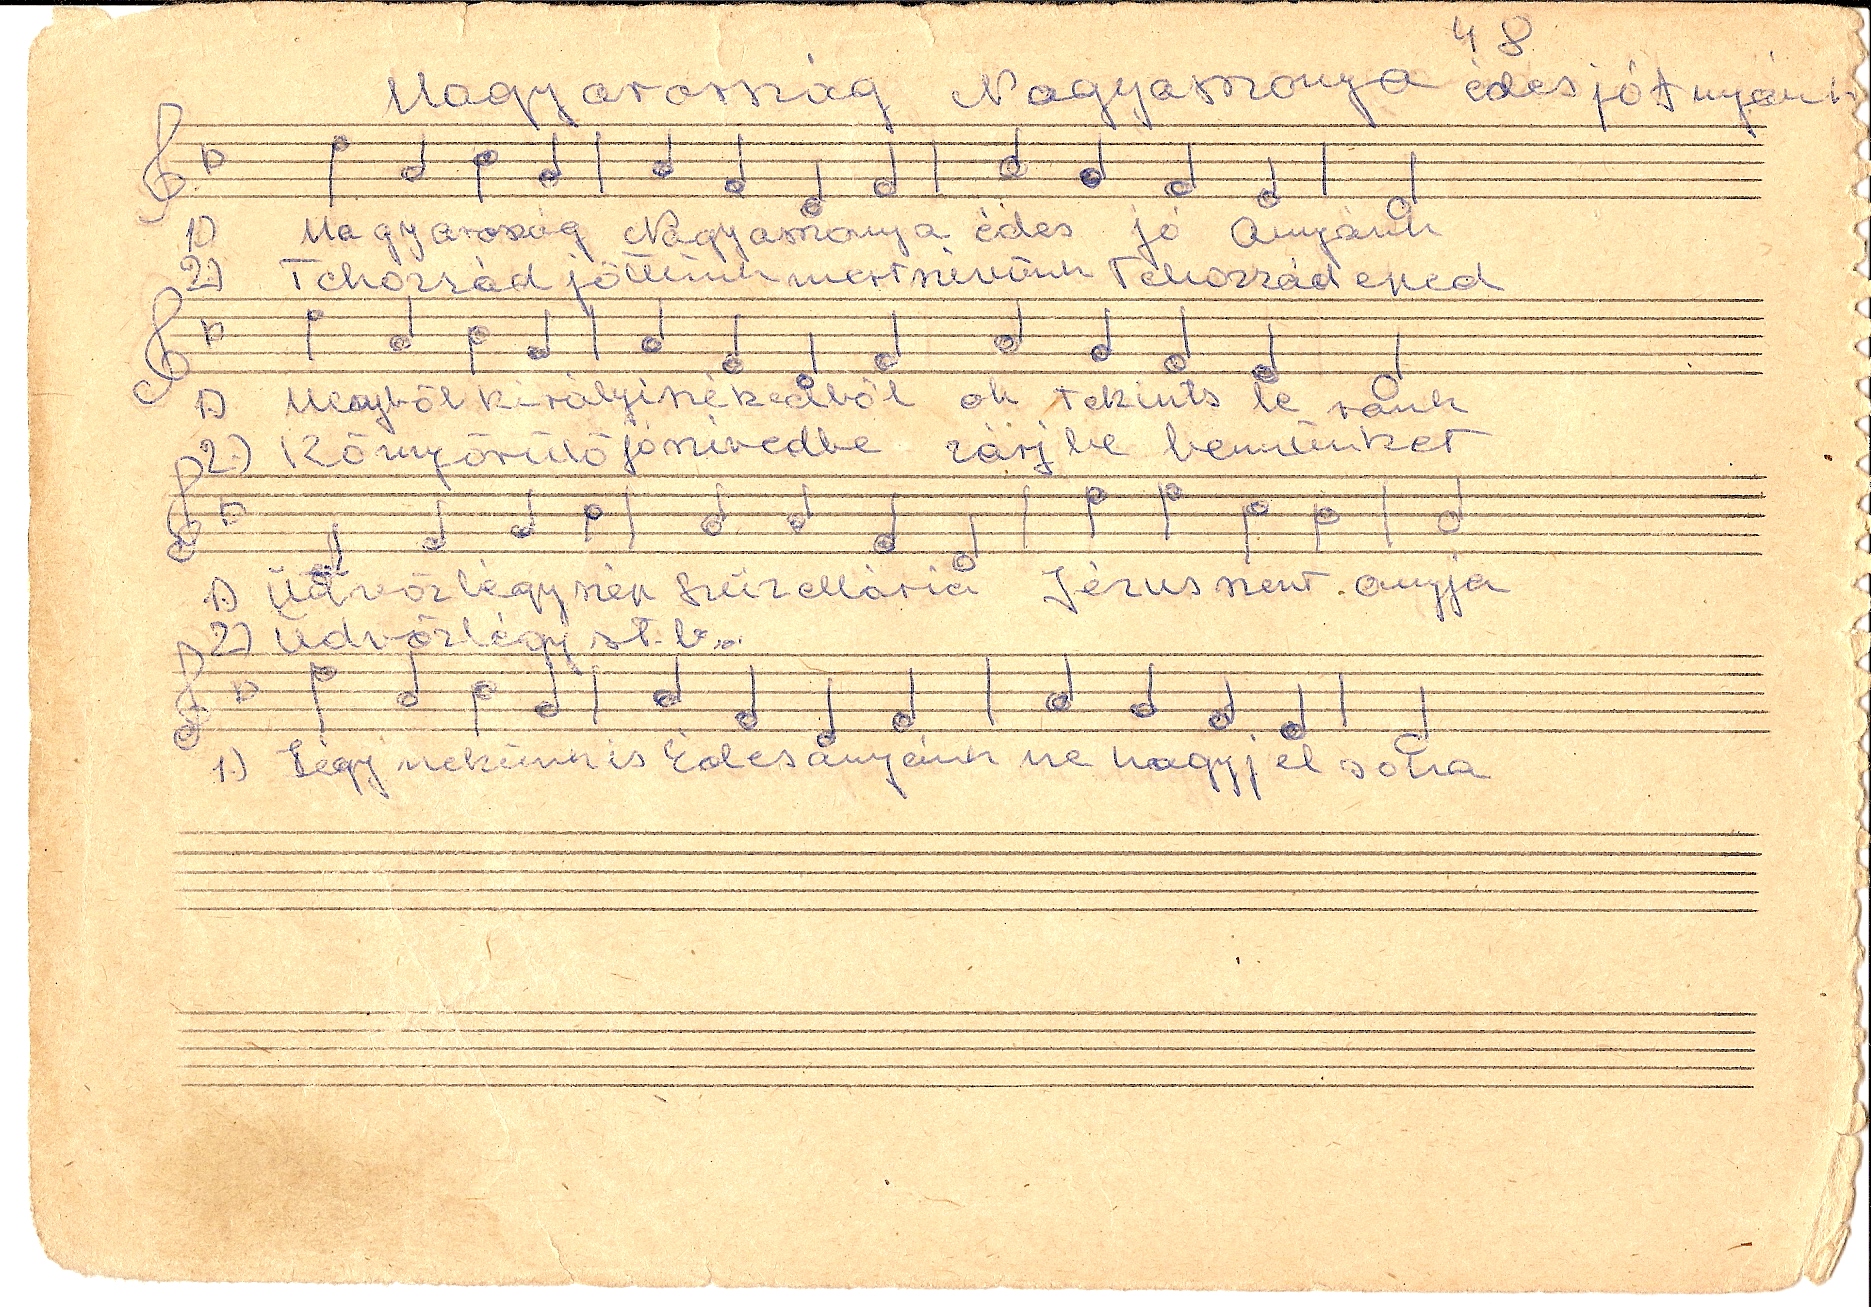 48
Magyarország Nagyasszonya édes jó Anyánk
1) Magyarország Nagyasszonya édes jó Anyánk
2) Tehozzád jöttünk mert szívünk Tehozzád eped
1) Menyböl királyi székedböl oh tekints le ránk
2.) Könyörülö jó szívedbe zárj be bennünket
1) Üdvözlégy szép Szüz Mária Jézus szent anyja
2) Üdvözlégy st.b...
1.) Légy nekünk is Édesányánk ne hagyj el soha